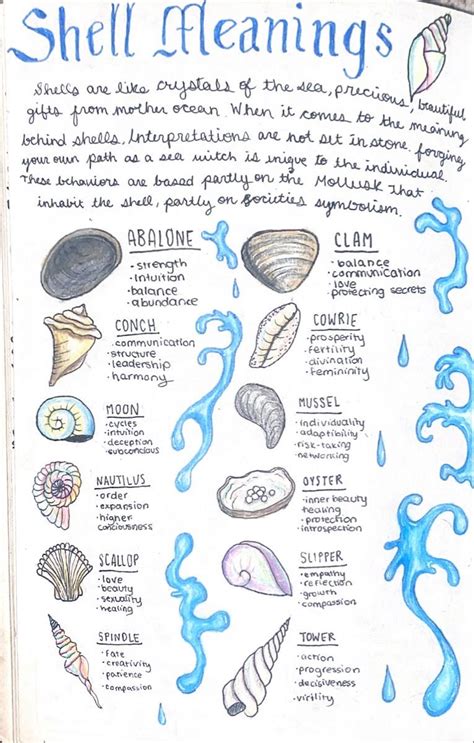 Shell Meanings
Shells are like crystals of the sea, precious, beautiful
gifts from mother ocean. When it comes to the meaning
behind shells, Interpretations are not set in stone. forging
your own path as a sea witch is uniqe to the individual.
These behaviors are based partly on the Mollusk That
inhabit the shell, partly on societies symbolism.
ABALONE
• strength
• Intuition
• balance
• abundance
CLAM
• balance
• communication
• love
• protecting secrets
CONCH
• communication
• structure
• leadership
• harmony
COWRIE
• prosperity
• fertility
• divination
• femininity
MOON
• cycles
• intuition
• deception
• subconcious
MUSSEL
• individuality
• adaptibility
• risk-taking
• networking
NAUTILUS
• order
• expansion
• higher
consciousness
OYSTER
• inner beauty
• healing
• protection
• introspection
SCALLOP
• love
• beauty
• sexuality
• healing
SLIPPER
• empathy
• reflection
• growth
• compassion
SPINDLE
• Fate
• creativity
• patience
• compassion
TOWER
• action
• progression
• decisiveness
• virility